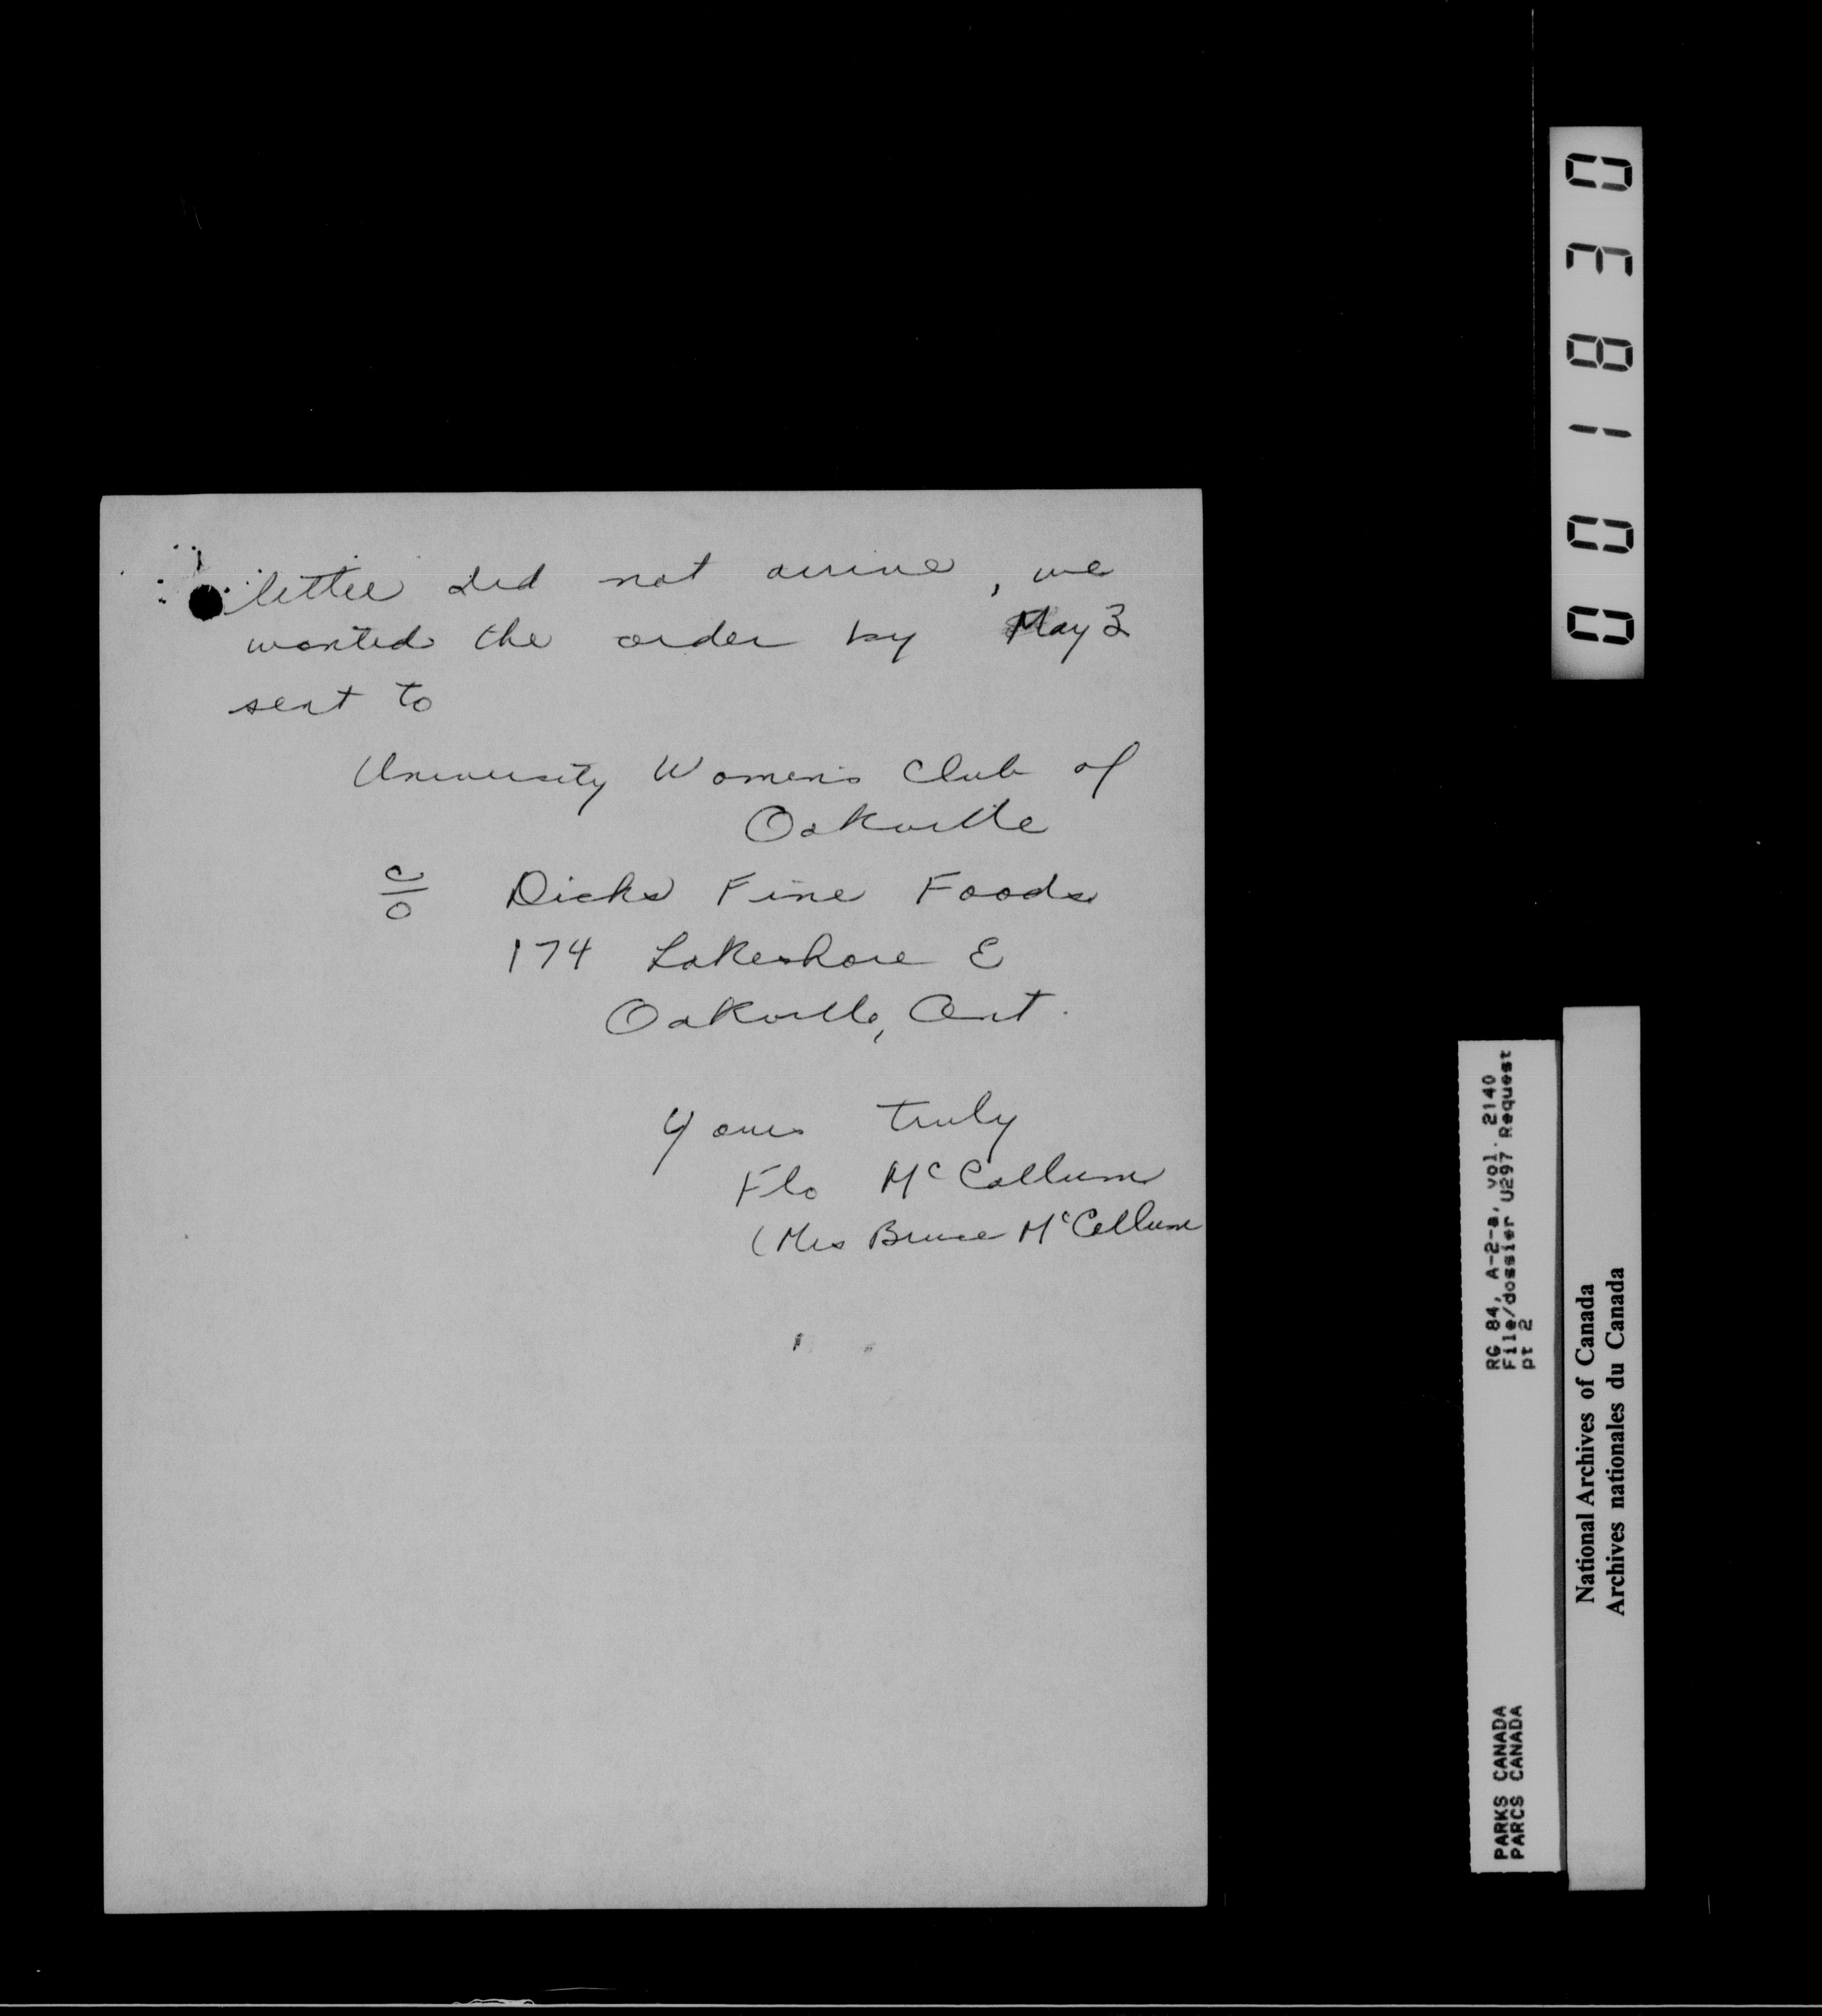 letter did not arrive, we
wanted the order by May 3
sent to
University Women's Club of
Oakville
c/o Dicks Fine Foods
174 Lakeshore E
Oakville, Ont.
Yours truly
Flo McCollum
(Mrs Bruce McCollum
001830
RG 84, A-2-a, vol. 2140
File/dossier U297 Request
pt 2
PARKS CANADA
PARCS CANADA
National Archives of Canada
Archives nationales du Canada